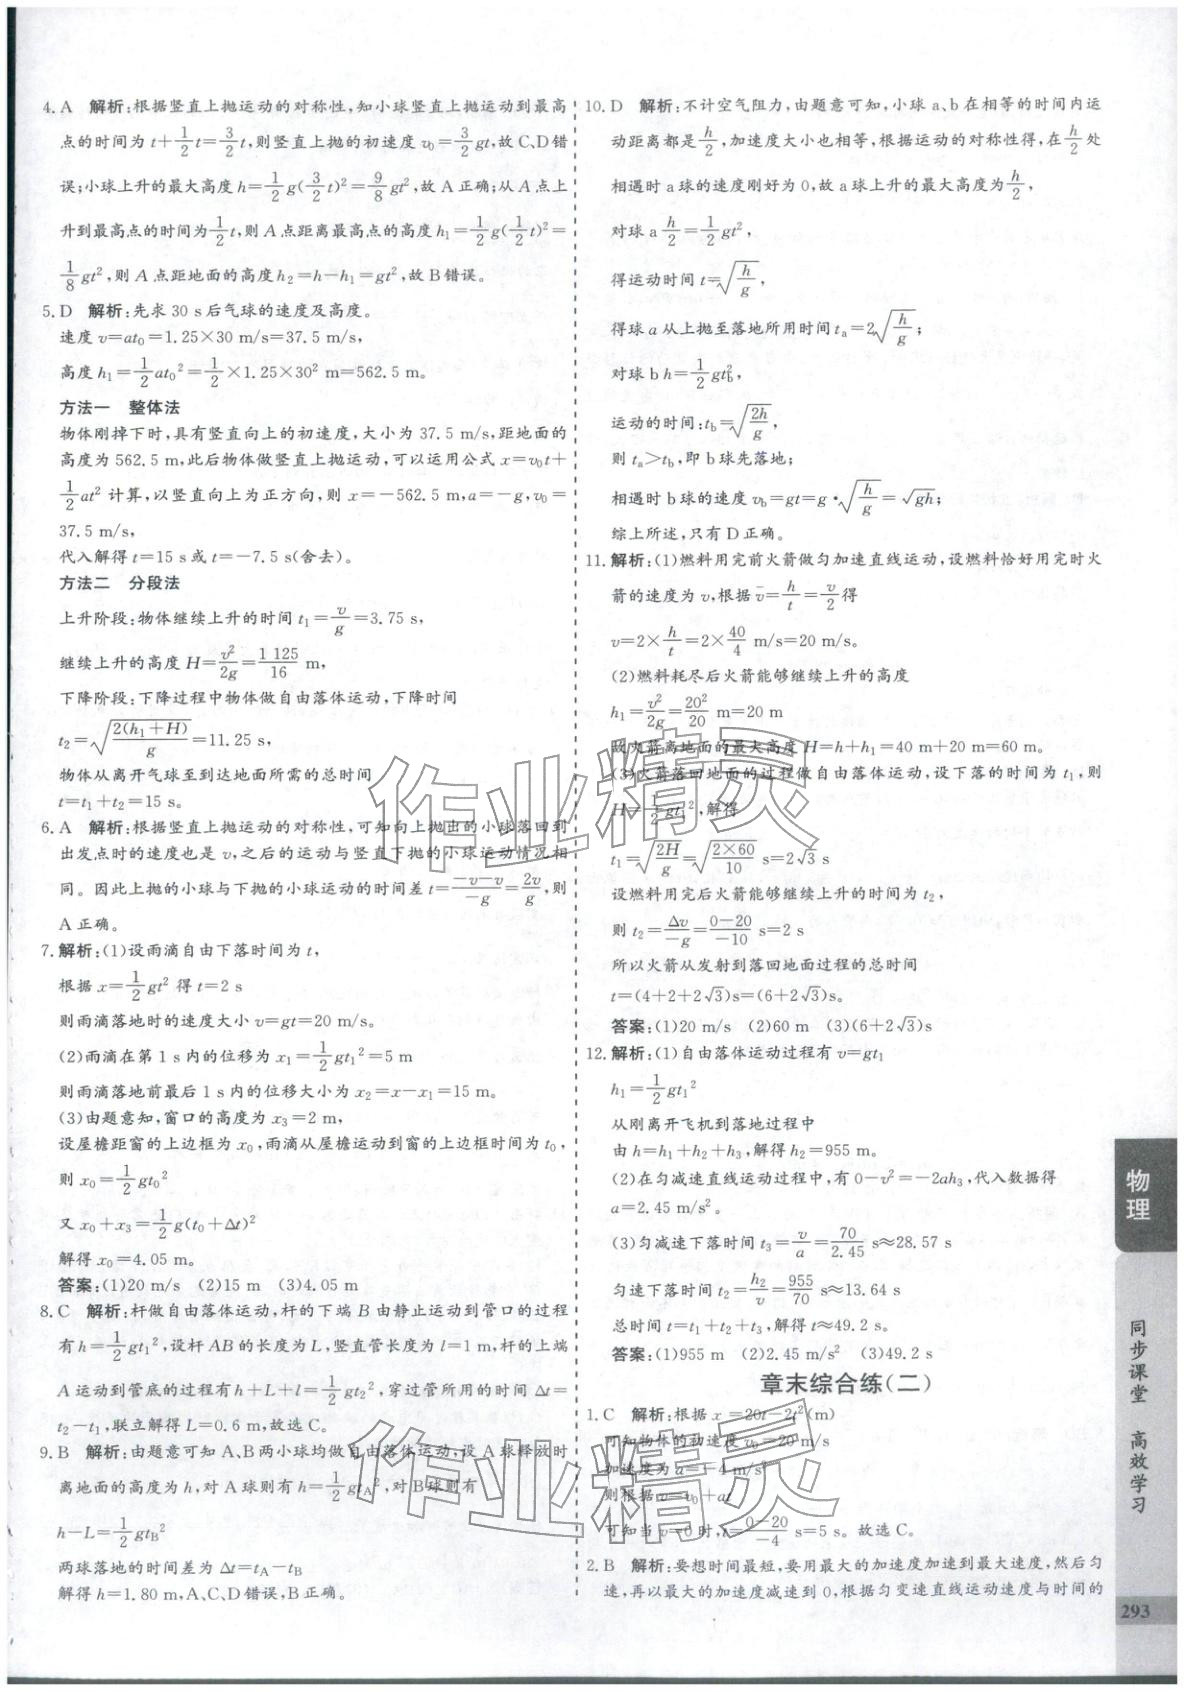 4. A　解析:根据竖直上抛运动的对称性,知小球竖直上抛运动到最高
点的时间为 t+1/2t=3/2t,则竖直上抛的初速度 v₀=3/2gt,故 C、D 错
误;小球上升的最大高度 h=1/2g(3/2t)²=9/8gt²,故 A 正确;从 A 点上
升到最高点的时间为1/2t,则 A 点距离最高点的高度 h₁=1/2g(1/2t)²=
1/8gt²,则 A 点距地面的高度 h₂=h-h₁=gt²,故 B 错误。
5. D　解析:先求 30 s 后气球的速度及高度。
速度 v=at₀=1.25×30 m/s=37.5 m/s,
高度 h₁=1/2at₀²=1/2×1.25×30² m=562.5 m。
方法一　整体法
物体刚掉下时,具有竖直向上的初速度,大小为 37.5 m/s,距地面的
高度为 562.5 m,此后物体做竖直上抛运动,可以运用公式 x=v₀t+
1/2at² 计算,以竖直向上为正方向,则 x=-562.5 m,a=-g,v₀=
37.5 m/s,
代入解得 t=15 s 或 t=-7.5 s(舍去)。
方法二　分段法
上升阶段:物体继续上升的时间 t₁=v/g=3.75 s,
继续上升的高度 H=v²/2g=1 125/16 m,
下降阶段:下降过程中物体做自由落体运动,下降时间
t₂=√(2(h₁+H)/g)=11.25 s,
物体从离开气球至到达地面所需的总时间
t=t₁+t₂=15 s。
6. A　解析:根据竖直上抛运动的对称性,可知向上抛出的小球落回到
出发点时的速度也是 v,之后的运动与竖直下抛的小球运动情况相
同。因此上抛的小球与下抛的小球运动的时间差 t=(-v-v)/(-g)=2v/g,则
A 正确。
7. 解析:(1)设雨滴自由下落时间为 t,
根据 x=1/2gt² 得 t=2 s
则雨滴落地时的速度大小 v=gt=20 m/s。
(2)雨滴在第 1 s 内的位移为 x₁=1/2gt₁²=5 m
则雨滴落地前最后 1 s 内的位移大小为 x₂=x-x₁=15 m。
(3)由题意知,窗口的高度为 x₃=2 m,
设屋檐距窗的上边框为 x₀,雨滴从屋檐运动到窗的上边框时间为 t₀,
则 x₀=1/2gt₀²
又 x₀+x₃=1/2g(t₀+Δt)²
解得 x₀=4.05 m。
答案:(1)20 m/s　(2)15 m　(3)4.05 m
8. C　解析:杆做自由落体运动,杆的下端 B 由静止运动到管口的过程
有 h=1/2gt₁²,设杆 AB 的长度为 L,竖直管长度为 l=1 m,杆的上端
A 运动到管底的过程有 h+L+l=1/2gt₂²,穿过管所用的时间 Δt=
t₂-t₁,联立解得 L=0.6 m,故选 C。
9. B　解析:由题意可知 A、B 两小球均做自由落体运动,设 A 球释放时
离地面的高度为 h,对 A 球则有 h=1/2gt_A²,对 B 球则有
h-L=1/2gt_B²
两球落地的时间差为 Δt=t_A-t_B
解得 h=1.80 m,A、C、D 错误,B 正确。
10. D　解析:不计空气阻力,由题意可知,小球 a、b 在相等的时间内运
动距离都是h/2,加速度大小也相等,根据运动的对称性得,在h/2处
相遇时 a 球的速度刚好为 0,故 a 球上升的最大高度为h/2,
对球 a h/2=1/2gt²,
得运动时间 t=√(h/g),
得球 a 从上抛至落地所用时间 t_a=2√(h/g),
对球 b h=1/2gt_b²,
运动的时间:t_b=√(2h/g),
则 t_a>t_b,即 b 球先落地;
相遇时 b 球的速度 v_b=gt=g·√(h/g)=√gh;
综上所述,只有 D 正确。
11. 解析:(1)燃料用完前火箭做匀加速直线运动,设燃料恰好用完时火
箭的速度为 v,根据 v̄=h/t=v/2得
v=2×h/t=2×40/4 m/s=20 m/s。
(2)燃料耗尽后火箭能够继续上升的高度
h₁=v²/2g=20²/20 m=20 m
故火箭离地面的最大高度 H=h+h₁=40 m+20 m=60 m。
(3)火箭落回地面的过程做自由落体运动,设下落的时间为 t₁,则
H=1/2gt₁²,解得
t₁=√(2H/g)=√(2×60/10) s=2√3 s
设燃料用完后火箭能够继续上升的时间为 t₂,
则 t₂=Δv/-g=(0-20)/-10 s=2 s
所以火箭从发射到落回地面过程的总时间
t=(4+2+2√3)s=(6+2√3)s。
答案:(1)20 m/s　(2)60 m　(3)(6+2√3)s
12. 解析:(1)自由落体运动过程有 v=gt₁
h₁=1/2gt₁²
从刚离开飞机到落地过程中
由 h=h₁+h₂+h₃,解得 h₂=955 m。
(2)在匀减速直线运动过程中,有 0-v²=-2ah₃,代入数据得
a=2.45 m/s²。
(3)匀减速下落时间 t₃=v/a=70/2.45 s≈28.57 s
匀速下落时间 t₂=h₂/v=955/70 s≈13.64 s
总时间 t=t₁+t₂+t₃,解得 t≈49.2 s。
答案:(1)955 m　(2)2.45 m/s²　(3)49.2 s
章末综合练(二)
1. C　解析:根据 x=20t-2t²(m)
可知物体的初速度 v₀=20 m/s
加速度为 a=-4 m/s²
则根据 v=v₀+at
可知当 v=0 时,t=(0-20)/-4 s=5 s。故选 C。
2. B　解析:要想时间最短,要用最大的加速度加速到最大速度,然后匀
速,再以最大的加速度减速到 0,根据匀变速直线运动速度与时间的
物理
同步课堂　高效学习
293
作业精灵
作业精灵